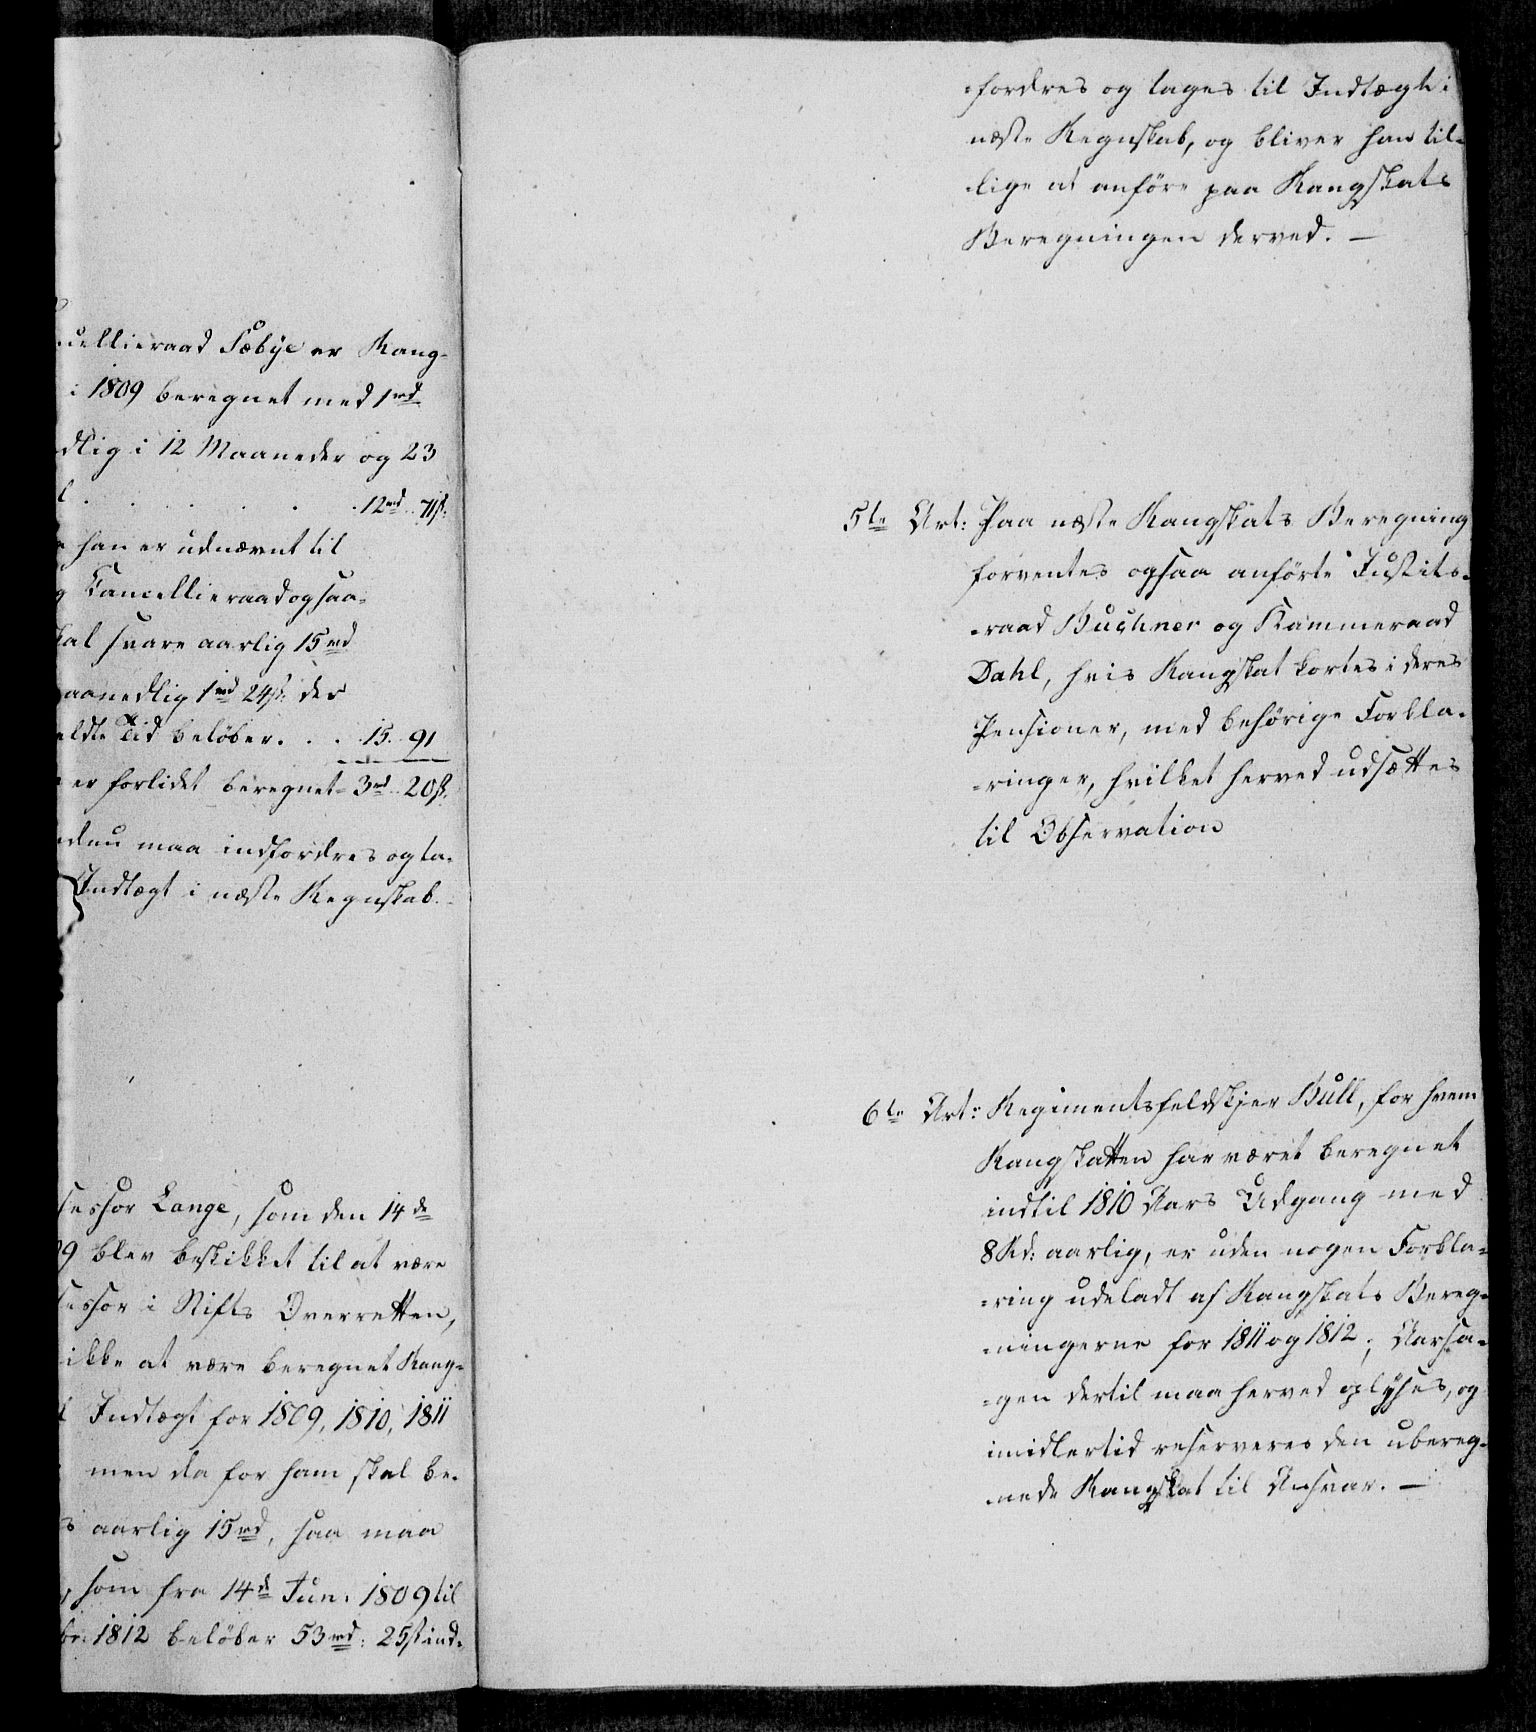 cellieraad Sæbye er Rang-
i 1809 beregnet med 1rd
dlig i 12 Maaneder og 23
l . . . . . . 12rd 71ß.
han er udnævnt til
g Cancellieraad ogsaa
kal svare aarlig 15rd
aanedlig 1rd 24ß. der
eldte Tid beløber . . . 15. 91
er forlidet beregnet 3rd 20ß.
endnu maa indfordres og ta-
Indtægt i næste Regnskab.
sessor Lange, som den 14de
09 blev beskikket til at være
sessor i Stifts Overretten,
ikke at være beregnet Rang-
l Indtægt for 1809, 1810, 1811
men da for ham skal be-
s aarlig 15rd, saa maa
som fra 14de Jun: 1809 til
br: 1812 beløber 53rd: 25ß ind-
-fordres og tages til Indtægt i
næste Regnskab, og bliver han til-
-lige at anføre paa Rangskats
Beregningen derved. —
5te Art: Paa næste Rangskats Beregning
forventes ogsaa anførte Justits-
-raad Buchner og Kammeraad
Dahl, hvis Rangskat kortes i deres
Pensioner, med behørige Forkla-
-ringer, hvilket herved udsættes
til Observation
6te Art: Regimentsfeldskjer Bull, for hvem
Rangskatten har været beregnet
indtil 1810 Aars Udgang med
8 Rd: aarlig, er uden nogen Forkla-
-ring udeladt af Rangskats Bereg-
-ningerne for 1811 og 1812; Aarsa-
-gen dertil maa herved oplyses, og
imidlertid reserveres den ubereg-
-nede Rangskat til Ansvar. —